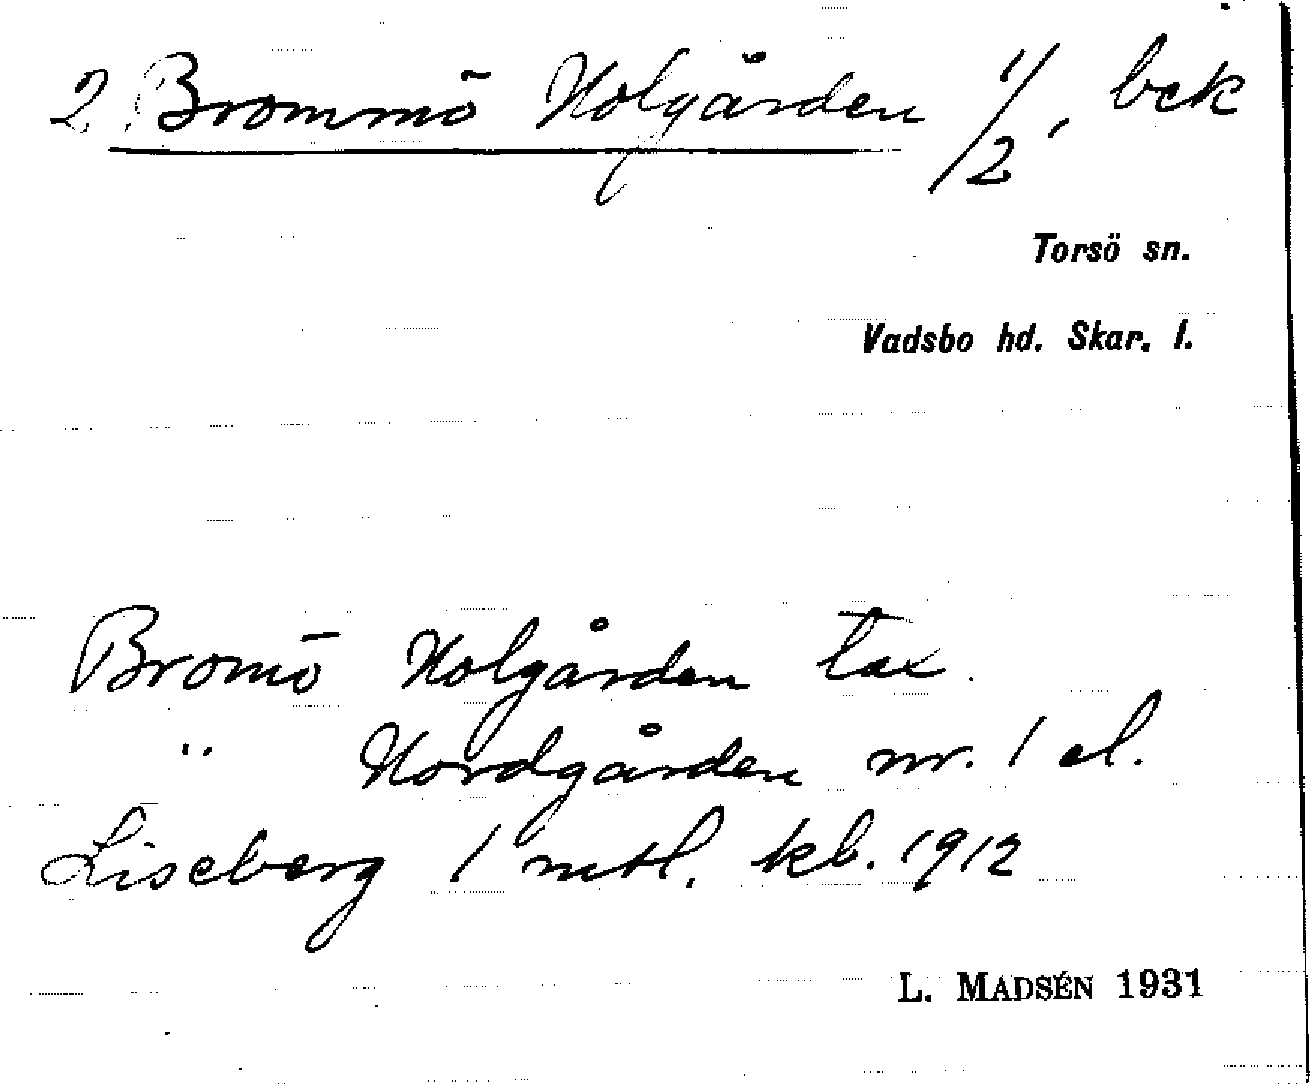 2. Brommö Nolgården 1/2, bek
Torsö sn.
Vadsbo hd. Skar. l.
Bromö Nolgården tax.
" Nordgården nr. 1 el.
Liseberg 1 mtl. kb. 1912
L. MADSÉN 1931